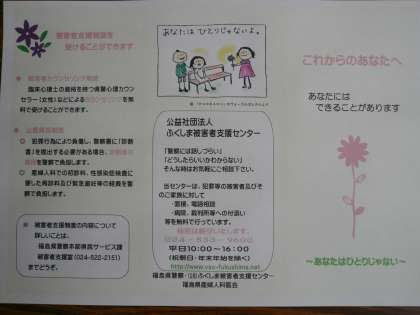 被害者支援制度を
受けることができます
● 被害者カウンセリング制度
臨床心理士の資格を持つ県警心理カウン
セラー(女性)などによるカウンセリングを無
料で受けることができます。
● 公費負担制度
○ 犯罪行為により負傷し、警察署に「診断
書」を提出する必要がある場合、診断書の
を警察で負担します。
○ 産婦人科での初診料、性感染症検査に
要した再診料及び緊急避妊等の経費を警
察で負担します。
● 被害者支援制度の内容について
詳しいことは、
福島県警察本部県民サービス課
被害者支援室(024-522-2151)
までどうぞ。
あなたは ひとりじゃないよ。
公益社団法人
ふくしま被害者支援センター
「警察には話しづらい」
「どうしたらいいかわからない」
そんな時はお気軽にご相談下さい。
当センターは、犯罪等の被害者及びそ
のご家族に対して
・面接、電話相談
・病院、裁判所等への付添い
等を無料で行っています。
秘密は厳守いたします。
024-533-9600
平日10:00~16:00
(祝祭日・年末年始を除く)
http://www.vss-fukushima.net
福島県警察・(公社)ふくしま被害者支援センター
福島県産婦人科医会
これからのあなたへ
あなたには
できることがあります
~あなたはひとりじゃない~